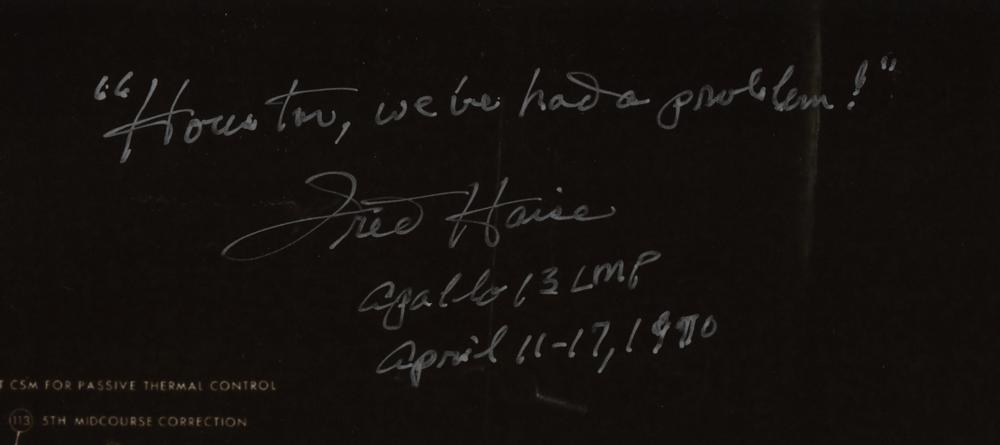 "Houston, we've had a problem!"
Fred Haise
Apollo 13 LMP
April 11-17, 1970
T CSM FOR PASSIVE THERMAL CONTROL
113 5TH MIDCOURSE CORRECTION